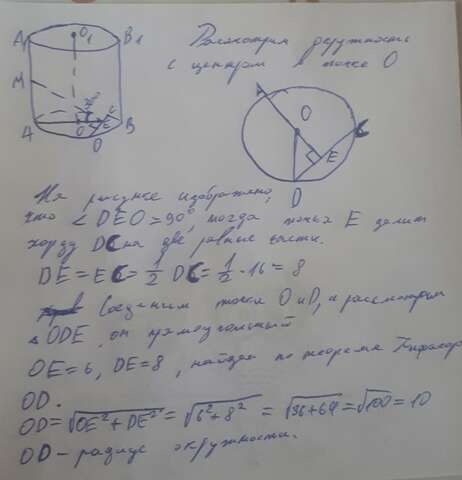 A₁ O₁ B₁
M
30°
A O E C B
D
Рассмотрим окружность
с центром в точке O
A
O
C
E
D
На рисунке изображено,
что ∠DEO=90°, тогда точка E делит
хорду DC на две равные части.
DE = EC = 1/2 DC = 1/2 · 16 = 8
Соединим точки O и D, и рассмотрим
△ ODE, он прямоугольный
OE=6, DE=8, найдем по теореме Пифагора
OD.
OD = √OE²+DE² = √6²+8² = √36+64 = √100 = 10
OD – радиус окружности.